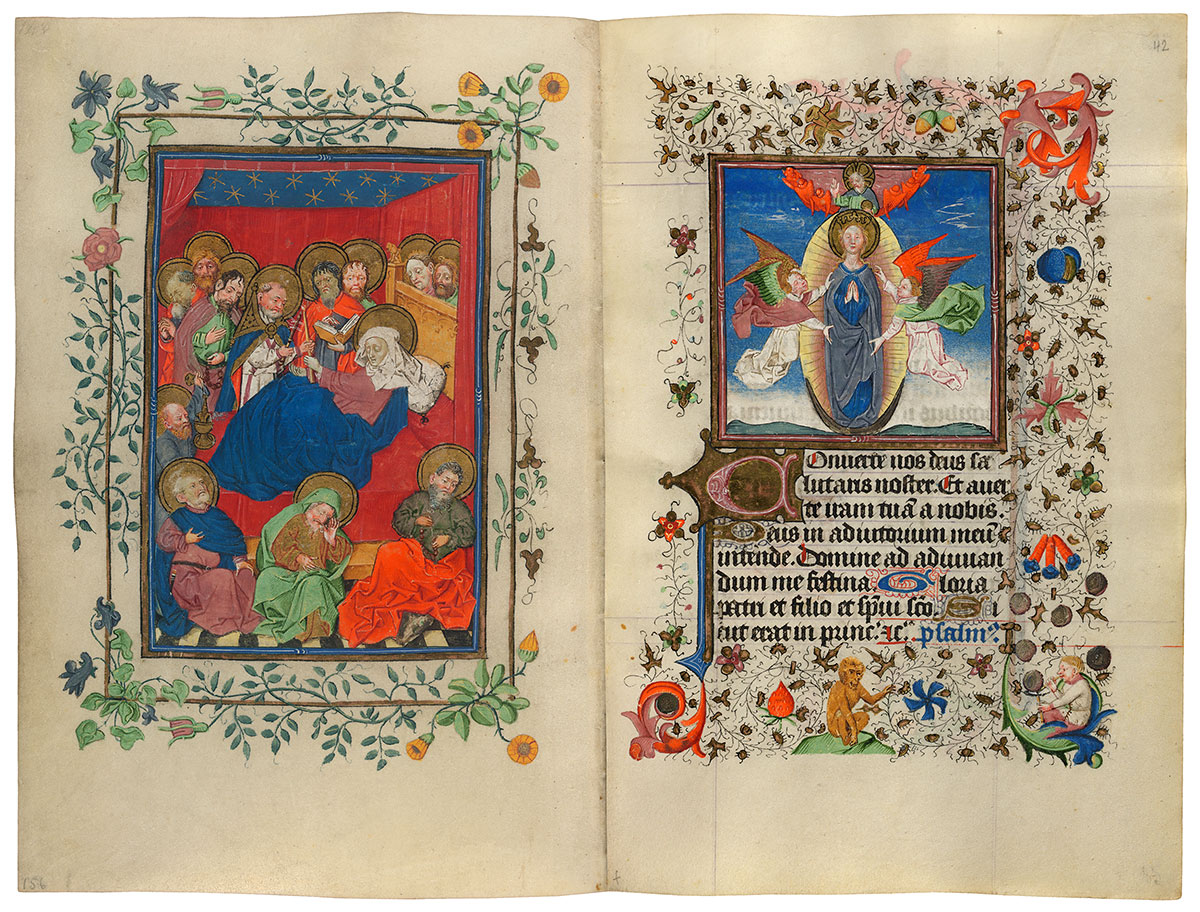 42
Conuerte nos deus sa
lutaris noster. Et auer
te iram tuā a nobis.
Deus in adiutorium meum̄
intende. Domine ad adiuuan
dum me festina Gloria
patri et filio et sp̄ui sc̄o. Si
cut erat in princ̄. ⁊c̄. psalm̄9.
156